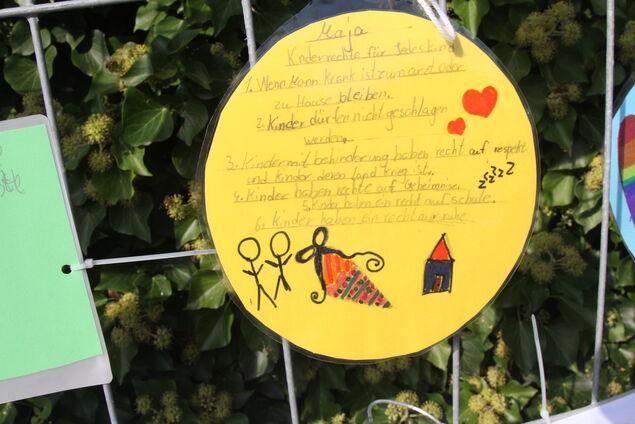 Maja
Kinderrechte für Jedes kind
1. Wenn Mann krank ist zum arzt oder
zu Hause bleiben.
2. Kinder dürfen nicht geschlagen
werden.
3. Kinder mit behinderung haben recht auf respekt
und Kinder deren land krieg ist.
4. Kinder haben rechte auf Geheimnise.
5. Kinder haben ein recht auf schule.
6. Kinder haben ein recht auf ruhe.
zzzzz